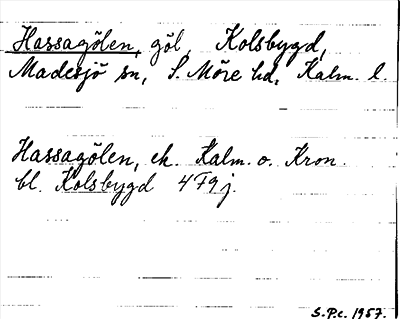 Hassagölen, göl, Kolsbygd,
Madesjö sn, S. Möre hd, Kalm. l.
Hassagölen, ek. Kalm. o. Kron.
bl. Kolsbygd 4F9j.
S.P.c. 1957.